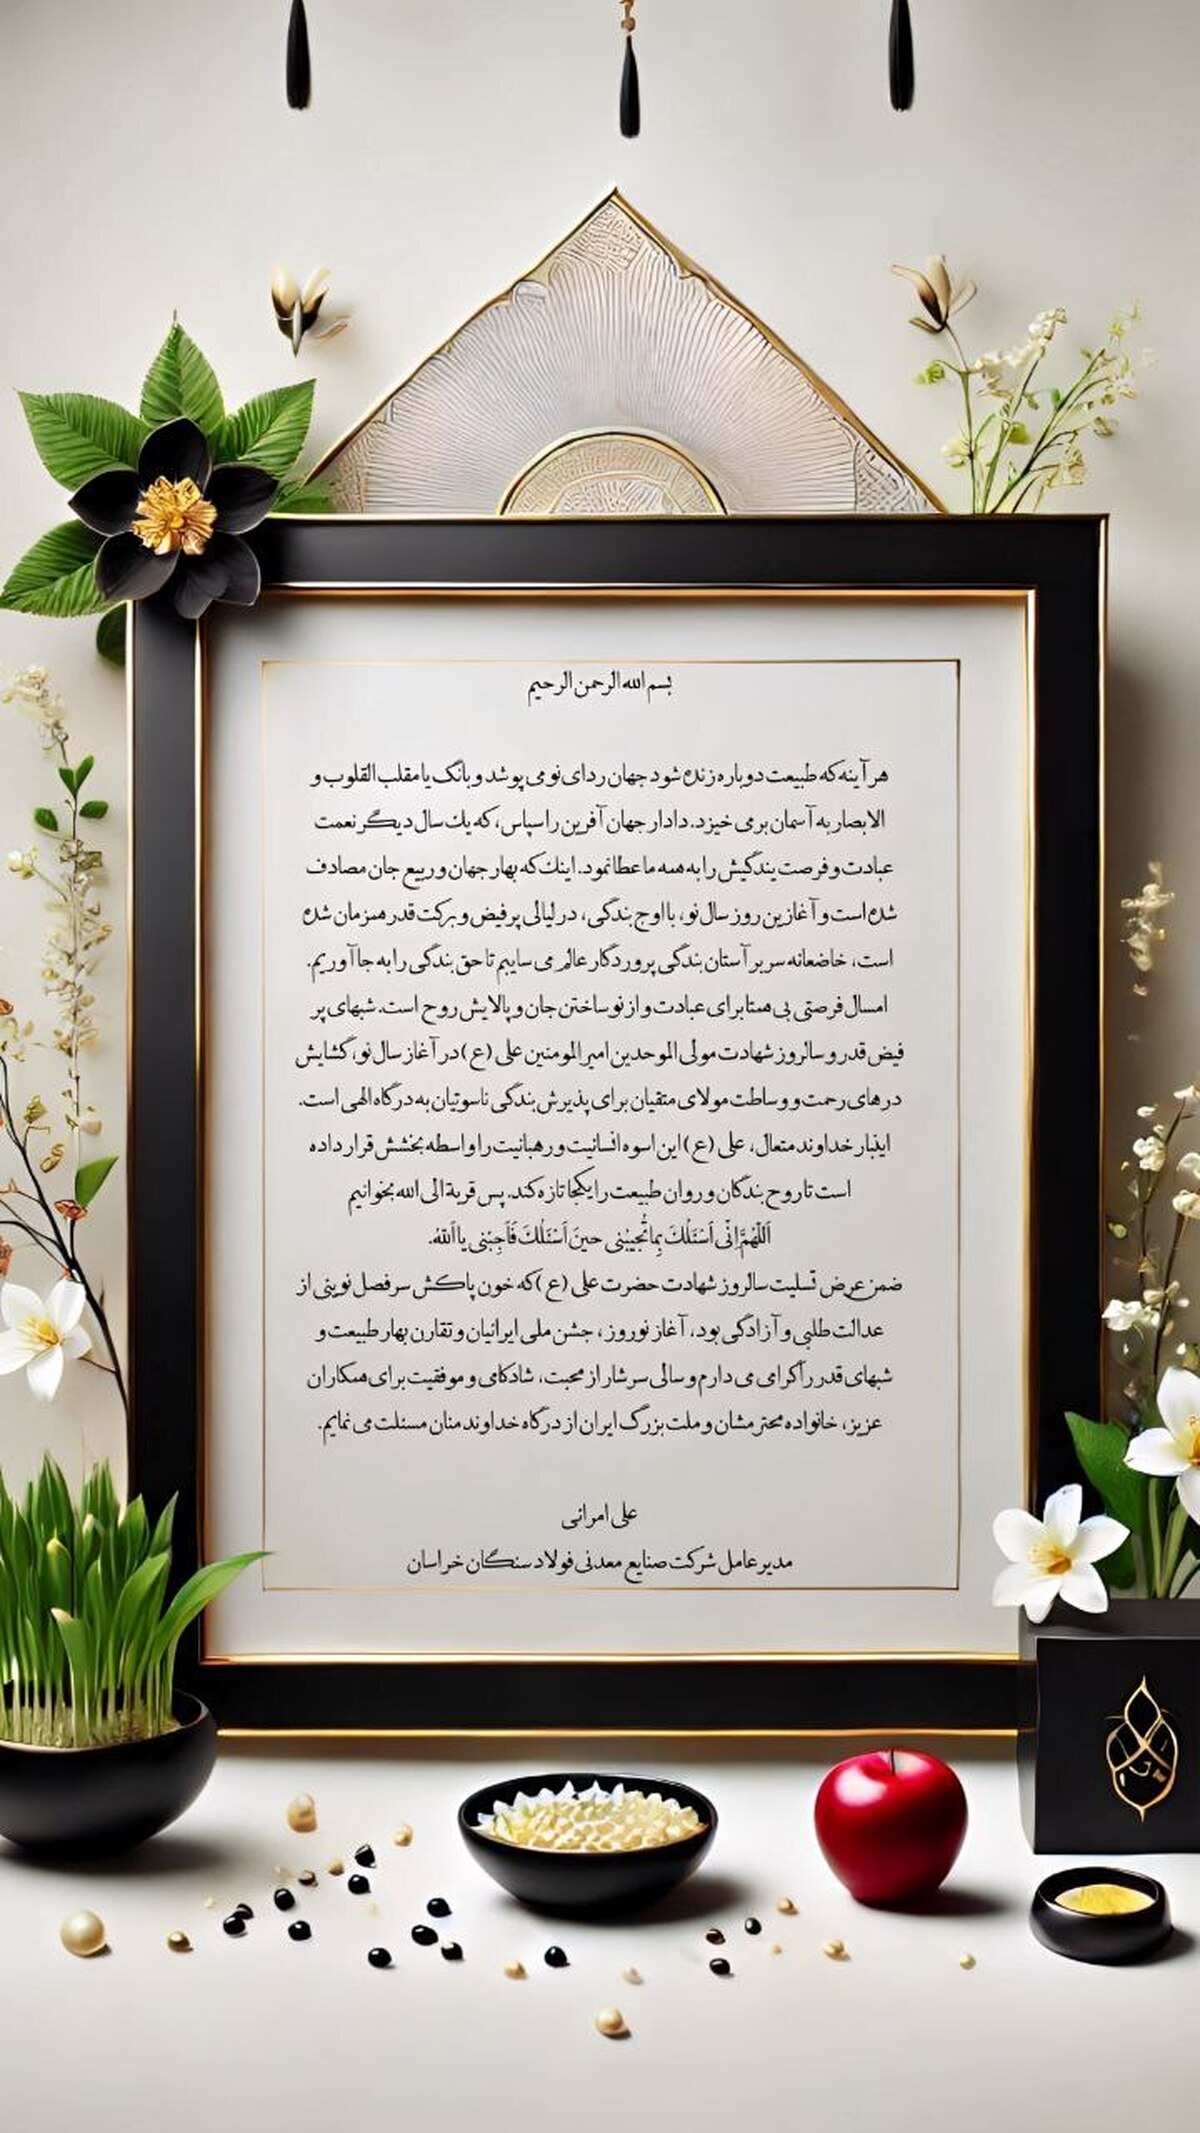 بسم الله الرحمن الرحیم
هر آینه که طبیعت دوباره زنده شود جهان ردای نو می پوشد و بانگ یا مقلب القلوب و
الابصار به آسمان برمی خیزد. دادار جهان آفرین را سپاس، که یک سال دیگر نعمت
عبادت و فرصت بندگیش را به همه ما عطا نمود. اینک که بهار جهان و ربیع جان مصادف
شده است و آغازین روز سال نو، با اوج بندگی، در لیالی پر فیض و برکت قدر همزمان شده
است، خاضعانه سر بر آستان بندگی پروردگار عالم می ساییم تا حق بندگی را به جا آوریم.
امسال فرصتی بی همتا برای عبادت و از نو ساختن جان و پالایش روح است. شبهای پر
فیض قدر و سالروز شهادت مولی الموحدین امیرالمومنین علی (ع) در آغاز سال نو، گشایش
درهای رحمت و وساطت مولای متقیان برای پذیرش بندگی ناسوتیان به درگاه الهی است.
اینبار خداوند متعال، علی (ع) این اسوه انسانیت و رهبانیت را واسطه بخشش قرار داده
است تا روح بندگان و روان طبیعت را یکجا تازه کند. پس قربة الی الله بخوانیم
اَللّهُمَّ اِنّی اَسْئَلُکَ بِما تُجیبُنی حینَ اَسْئَلُکَ فَاَجِبْنی یا اَللهُ.
ضمن عرض تسلیت سالروز شهادت حضرت علی (ع) که خون پاکش سرفصل نوینی از
عدالت طلبی و آزادگی بود، آغاز نوروز، جشن ملی ایرانیان و تقارن بهار طبیعت و
شبهای قدر را گرامی می دارم و سالی سرشار از محبت، شادکامی و موفقیت برای همکاران
عزیز، خانواده محترمشان و ملت بزرگ ایران از درگاه خداوند منان مسئلت می نمایم.
علی امرانی
مدیرعامل شرکت صنایع معدنی فولاد سنگان خراسان